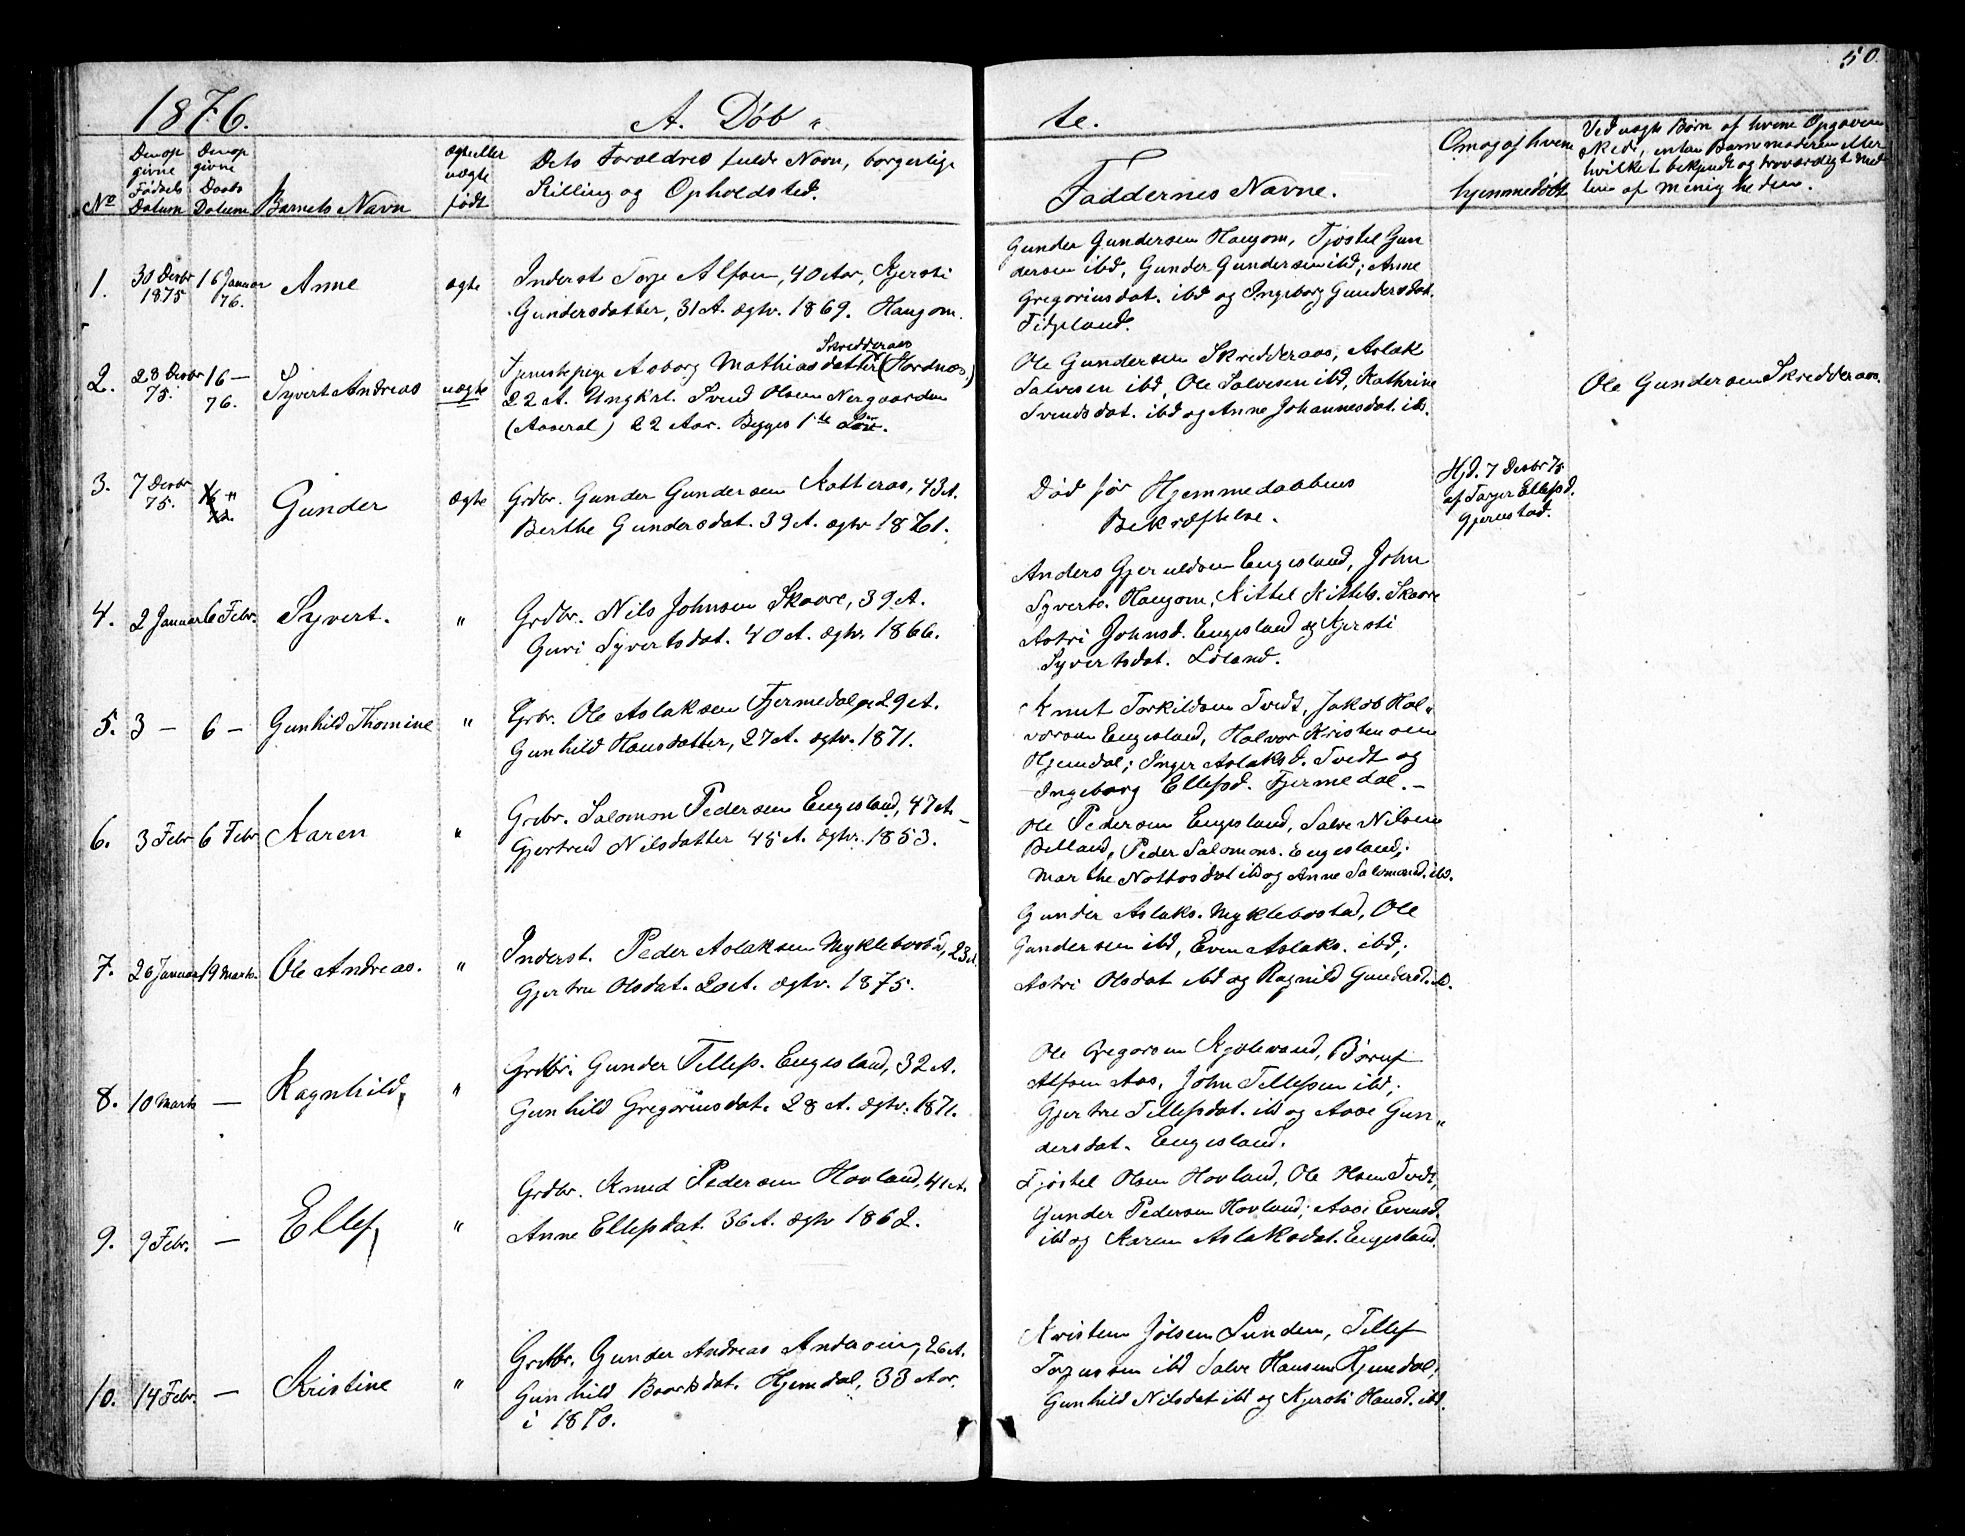 50.
1876. A. Døb „ te.
No
Den op
givne
Fødsels
Datum
Den op
givne
Daabs
Datum
Barnets Navn
ægte eller
uægte
født
Dets Forældres fulde Navn, borgerlige
Stilling og Opholdsted.
Faddernes Navne.
Om og af hvem
hjemmedøbt
Ved uægte Børn af hvem Opgaven
Skede, enten Barnemoderen eller
hvilket bekjendt og troværdigt Med
lem af Menigheden.
1. 30 Desbr 1875 16 Januar 76. Anne ægte
Inderst Torje Alfsen, 40 Aar, Kjersti
Gundersdatter, 31 A. ægtv. 1869. Haugom.
Gunder Gundersen Haugom, Tjøstel Gun
dersen ibd, Gunder Gundersen ibd; Anne
Gregoriusdat. ibd og Ingeborg Gundersdat.
Fidjeland.
2. 28 Desbr 75. 16 — 76. Syvert Andreas uægte
Skredderaas
Tjenestepige Asborg Mathiasdatter (Hordnæs)
22 A. Ungkrl. Svend Olsen Nergaarden
(Aaseral) 22 Aar. Begges 1ste Leir.
Ole Gundersen Skredderaas, Aslak
Salvesen ibd, Ole Salvesen ibd, Kathrine
Svendsdat. ibd og Anne Johannesdat. ib.
Ole Gundersen Skredderaas.
3. 7 Desbr 75. Gunder ægte
Grdbr. Gunder Gundersen Katteraas, 43 A.
Berthe Gundersdat. 39 A. ægtv 1861.
Død før Hjemmedaabens
Bekræftelse.
Hjd. 7 Desbr 75
af Torger Ellefsd.
Gjerustad.
4. 2 Januar 6 Febr. Syvert. „
Grdbr. Nils Johnsen Skaare, 39 A.
Guri Syvertsdat. 40 A. ægtv. 1866.
Anders Gjeruldsen Engesland, John
Syverts. Haugom, Kittel Kittels. Skaare
Astri Johnsd. Engesland og Kjersti
Syvertsdat. Løland.
5. 3 — 6 — Gunhild Thomine „
Grbr. Ole Aslaksen Fjermedal 29 A.
Gunhild Hansdatter, 27 A. ægtv. 1871.
Knut Torkildsen Tvedt, Jakob Hal„
vorsen Engesland, Halvor Kristensen
Hjemdal; Inger Aslaksd. Tvedt og
Ingeborg Ellefsd. Fjermedal. —
6. 3 Febr 6 Febr Karen „
Grbr. Salomon Pedersen Engesland, 47 A. —
Gjertrud Nilsdatter 45 A. ægtv. 1853.
Ole Pedersen Engesland, Salve Nilsen
Belland, Peder Salomons. Engesland;
Marthe Nottosdat ibd og Anne Salomonsd. ibd.
7. 26 Januar 19 Marts. Ole Andreas. „
Inderst. Peder Aslaksen Myklebostad, 23 A.
Gjertru Olsdat. 20 A. ægtv. 1875.
Gunder Aslaks. Myklebostad, Ole
Gundersen ibd, Even Aslaks. ibd;
Astri Olsdat ibd og Ragnild Gundersd. ib.
8. 10 Marts — Ragnhild, „
Grdbr. Gunder Tellefs. Engesland, 32 A.
Gunhild Gregoriusdat. 28 A. ægtv. 1871.
Ole Gregorsen Kjølevand, Børuf
Alfsen Aas, John Tellefsen ibd;
Gjertru Tellefsdat. ibd og Aase Gun„
dersdat. Engesland.
9. 9 Febr. — Ellef, „
Grdbr. Knud Pedersen Hovland, 41 A.
Anne Ellefsdat. 36 A. ægtv 1862.
Tjøstel Olsen Hovland, Ole Olsen Tvedt,
Gunder Pedersen Hovland; Aase Evensd.
ibd og Karen Aslaksdat. Engesland.
10. 14 Febr. — Kristine „
Grdbr. Gunder Andreas 26 A.
Gunhild Baardsdat. Hjemdal, 33 Aar.
i 1870.
Kristen Jølsen Lunden, Tellef
Torjussen ibd Salve Hansen Hjemdal;
Gunhild Nilsdat ibd og Kjersti Hansd. ibd.